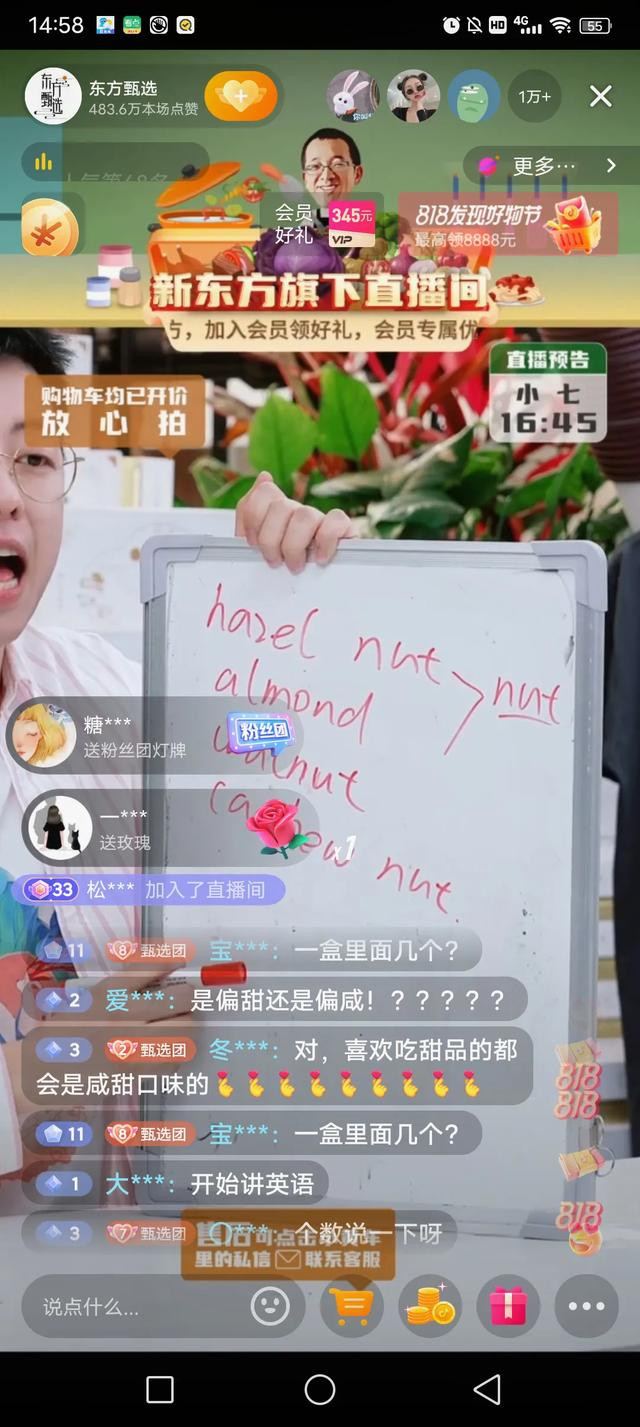 14:58
HD 4G 55
东方甄选
483.6万本场点赞
1万+
更多…
会员
好礼
345元
VIP
818发现好物节
最高领8888元
新东方旗下直播间
方，加入会员领好礼，会员专属优
购物车均已开价
放心拍
直播预告
小七
16:45
hazel nut
nut
almond
walnut
nut
糖***
送粉丝团灯牌
粉丝团
一***
送玫瑰
x1
33 松*** 加入了直播间
11 8 甄选团 宝***：一盒里面几个？
2 爱***：是偏甜还是偏咸！？？？？？
3 2 甄选团 冬***：对，喜欢吃甜品的都
会是咸甜口味的🫰🫰🫰🫰🫰🫰🫰🫰🫰
11 8 甄选团 宝***：一盒里面几个？
1 大***：开始讲英语
3 7 甄选团 个数说一下呀
里的私信 联系客服
818
818
818
说点什么...